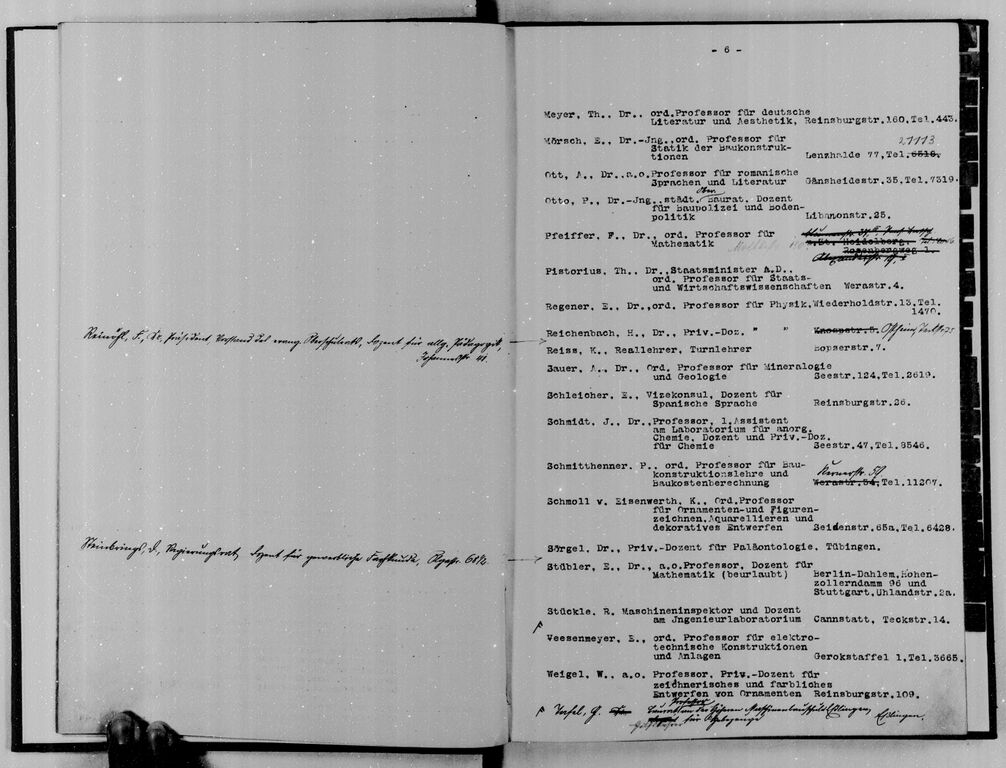 Reinöhl, F., Dr., Präsident, Vorstand des evang. Oberschulrats, Dozent für allg. Pädagogik,
Johannesstr.
Steinbrings, Regierungsrat, Dozent für gewerbliche Fachkunde,
- 6 -
Meyer, Th., Dr., ord.Professor für deutsche
Literatur und Aesthetik, Reinsburgstr.160,Tel.443.
21113
Mörsch, E., Dr.-Jng.,ord. Professor für
Statik der Baukonstruk-
tionen Lenzhalde 77,Tel.6318.
Ott, A., Dr.,a.o.Professor für romanische
Sprachen und Literatur Gänsheidestr.35,Tel.7319.
Ober
Otto, P., Dr.-Jng.,städt. Baurat, Dozent
für Baupolizei und Boden-
politik Libanonstr.25.
Pfeiffer, F., Dr., ord. Professor für
Mathematik z.Zt. Heidelberg,
Rosenbergweg 1.
Pistorius, Th., Dr.,Staatsminister A.D.,
ord. Professor für Staats-
und Wirtschaftswissenschaften Werastr.4.
Regener, E., Dr.,ord. Professor für Physik,Wiederholdstr.13,Tel.
1470.
Reichenbach, H., Dr., Priv.-Doz. " " Knospstr.5. Ostheim,
Reiss, K., Reallehrer, Turnlehrer Hopserstr.7.
Sauer, A., Dr., Ord. Professor für Mineralogie
und Geologie Seestr.124,Tel.2619.
Schleicher, E., Vizekonsul, Dozent für
Spanische Sprache Reinsburgstr.26.
Schmidt, J., Dr.,Professor, 1.Assistent
am Laboratorium für anorg.
Chemie, Dozent und Priv.-Doz.
für Chemie Seestr.47,Tel.8546.
Schmitthenner, P., ord. Professor für Bau-
konstruktionslehre und
Baukostenberechnung Werastr.54,Tel.11207.
Schmoll v. Eisenwerth, K., Ord.Professor
für Ornamenten-und Figuren-
zeichnen,Aquarellieren und
dekoratives Entwerfen Seidenstr.65a,Tel.6428.
Sörgel, Dr., Priv.-Dozent für Paläontologie, Tübingen.
Stübler, E., Dr., a.o.Professor, Dozent für
Mathematik (beurlaubt) Berlin-Dahlem,Hohen-
zollerndamm 96 und
Stuttgart,Uhlandstr.2a.
Stückle, R. Maschineninspektor und Dozent
am Jngenieurlaboratorium Cannstatt, Teckstr.14.
Veesenmeyer, E., ord. Professor für elektro-
technische Konstruktionen
und Anlagen Gerokstaffel 1,Tel.3665.
Weigel, W., a.o. Professor, Priv.-Dozent für
zeichnerisches und farbliches
Entwerfen von Ornamenten Reinsburgstr.109.
Professor
der höheren Maschinenbauschule Esslingen, Esslingen.
für